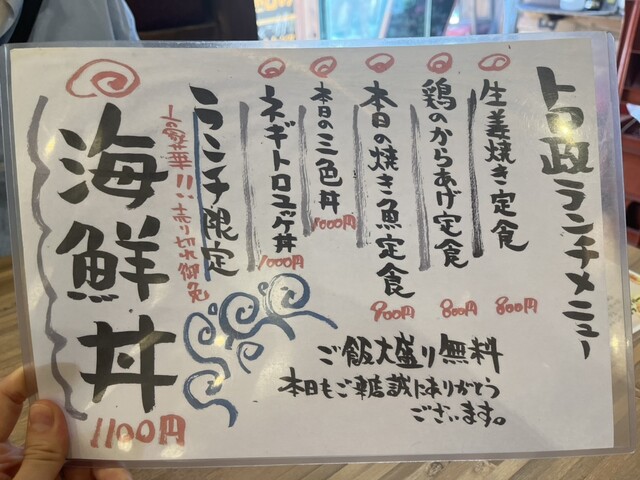 上政ランチメニュー
生姜焼き定食
800円
鶏のからあげ定食
800円
本日の焼き魚定食
900円
本日の三色丼
1000円
ネギトロユッケ丼
1000円
ランチ限定
売り切れ御免
海鮮丼
1100円
ご飯大盛り無料
本日もご来店誠にありがとう
ございます。